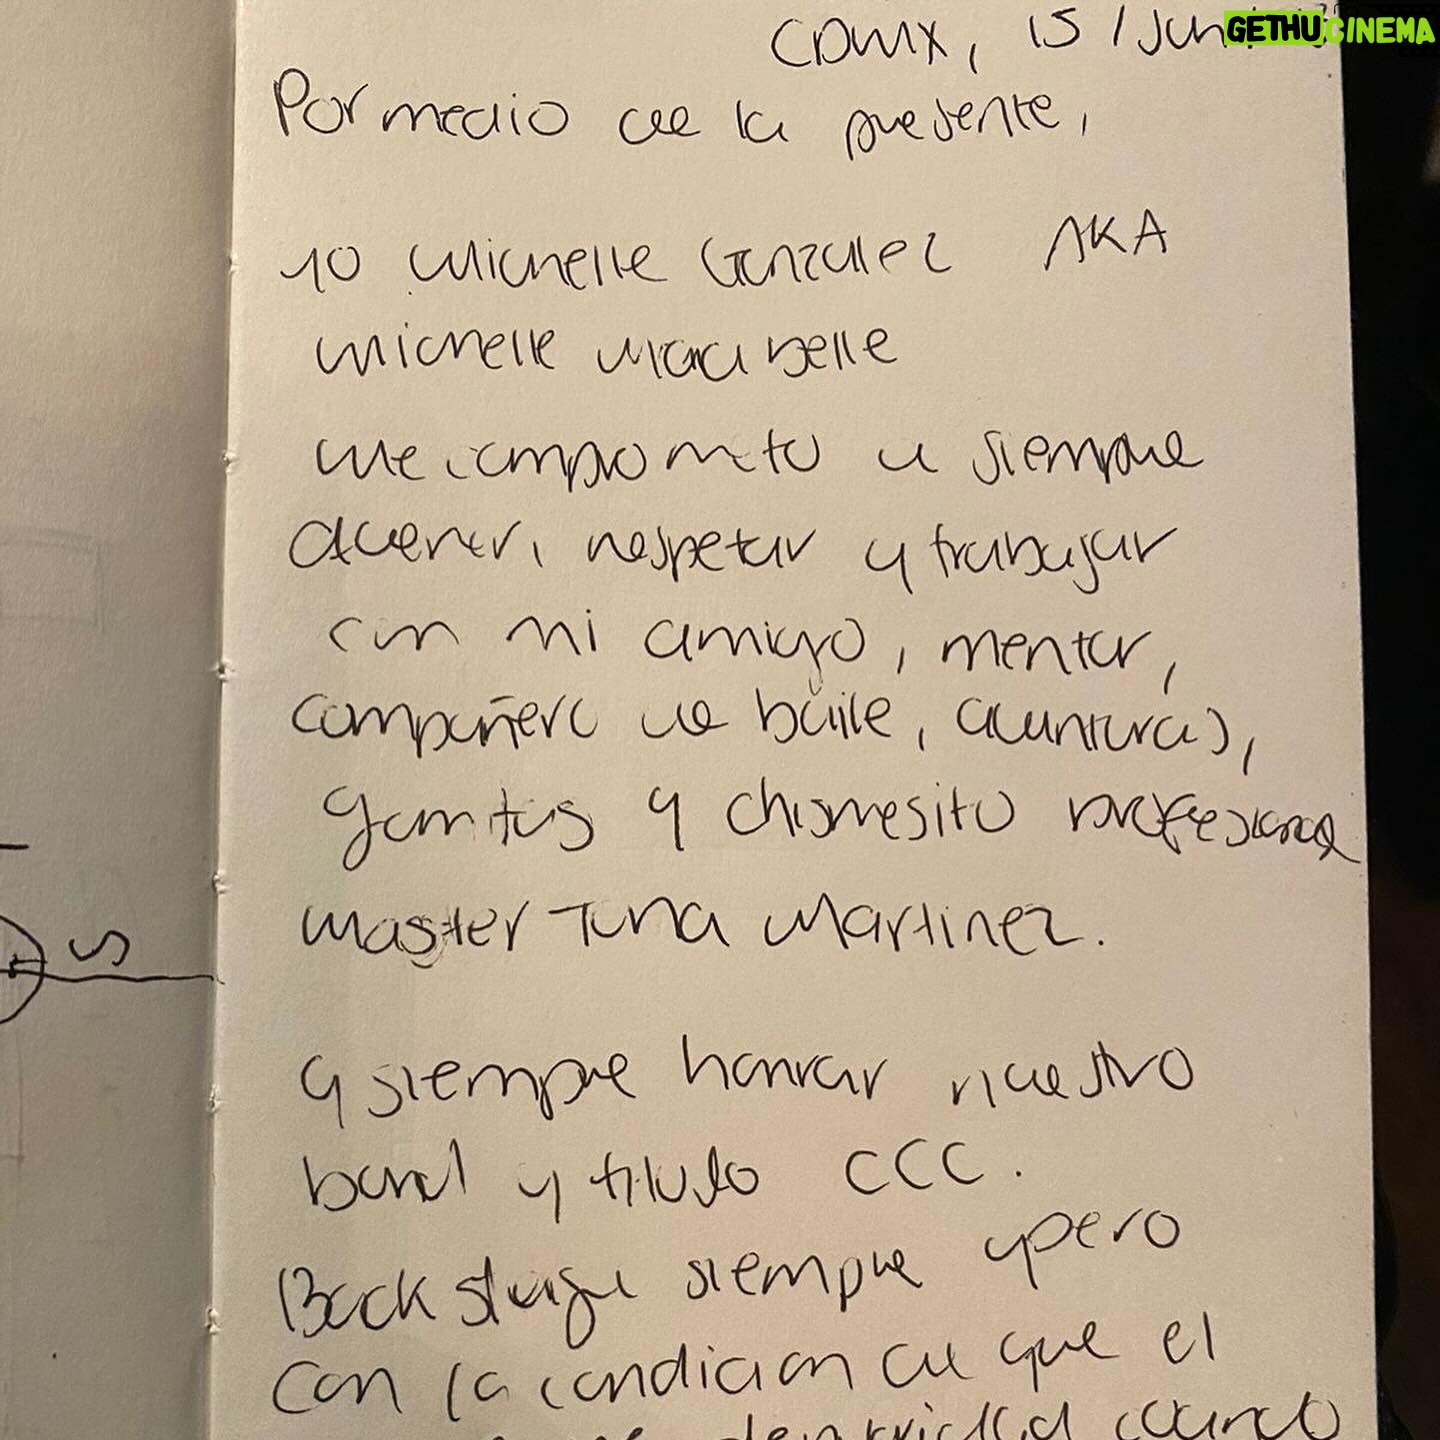 GETHUCINEMA
CDMX, 15 / Jun
Por medio de la presente,
yo Michelle Gonzalez AKA
Michelle Maci belle
me comprometo a siempre
querer, respetar y trabajar
con mi amigo, mentor,
compañero de baile, aventuras,
gomitas y chismesito profesional
master Tuna Martinez.
y siempre honrar nuestro
bond y titulo CCC.
Backstage siempre y pero
Con la condicion de que el
cuando